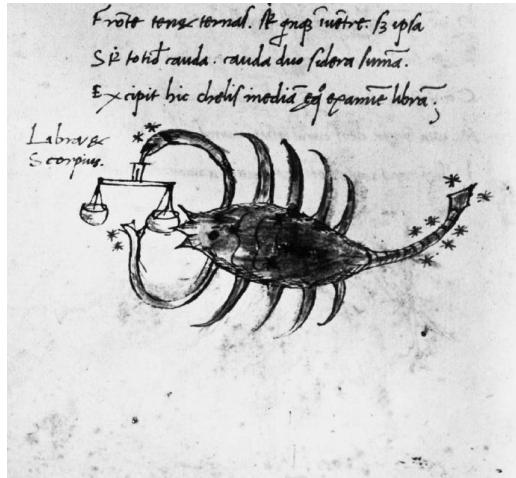 Frōte tenꝫ ternas. St̄ quinqꝫ ī uētre. sꝫ ipsa
St̄ totid̄ cauda. cauda duo sidera sumā.
Excipit hic chelis mediā eqͦ examīe librā;
Labra &
Scorpius.